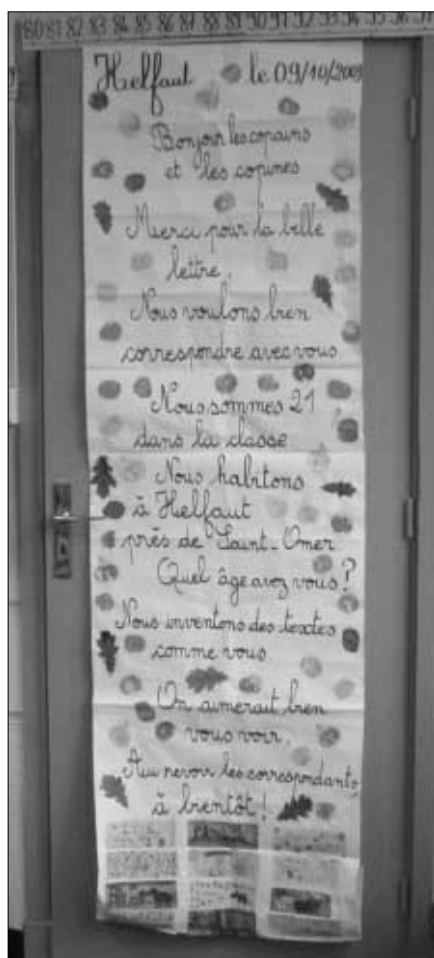 80 81 82 83 84 85 86 87 88 89 90 91 92 93 94 95 96 97
Helfaut le 09/10/2009
Bonjour les copains
et les copines
Merci pour la belle
lettre.
Nous voulons bien
correspondre avec vous
Nous sommes 21
dans la classe
Nous habitons
à Helfaut
près de Saint-Omer
Quel âge avez vous ?
Nous inventons des textes
comme vous
On aimerait bien
vous voir.
Au revoir les correspondants,
à bientôt !